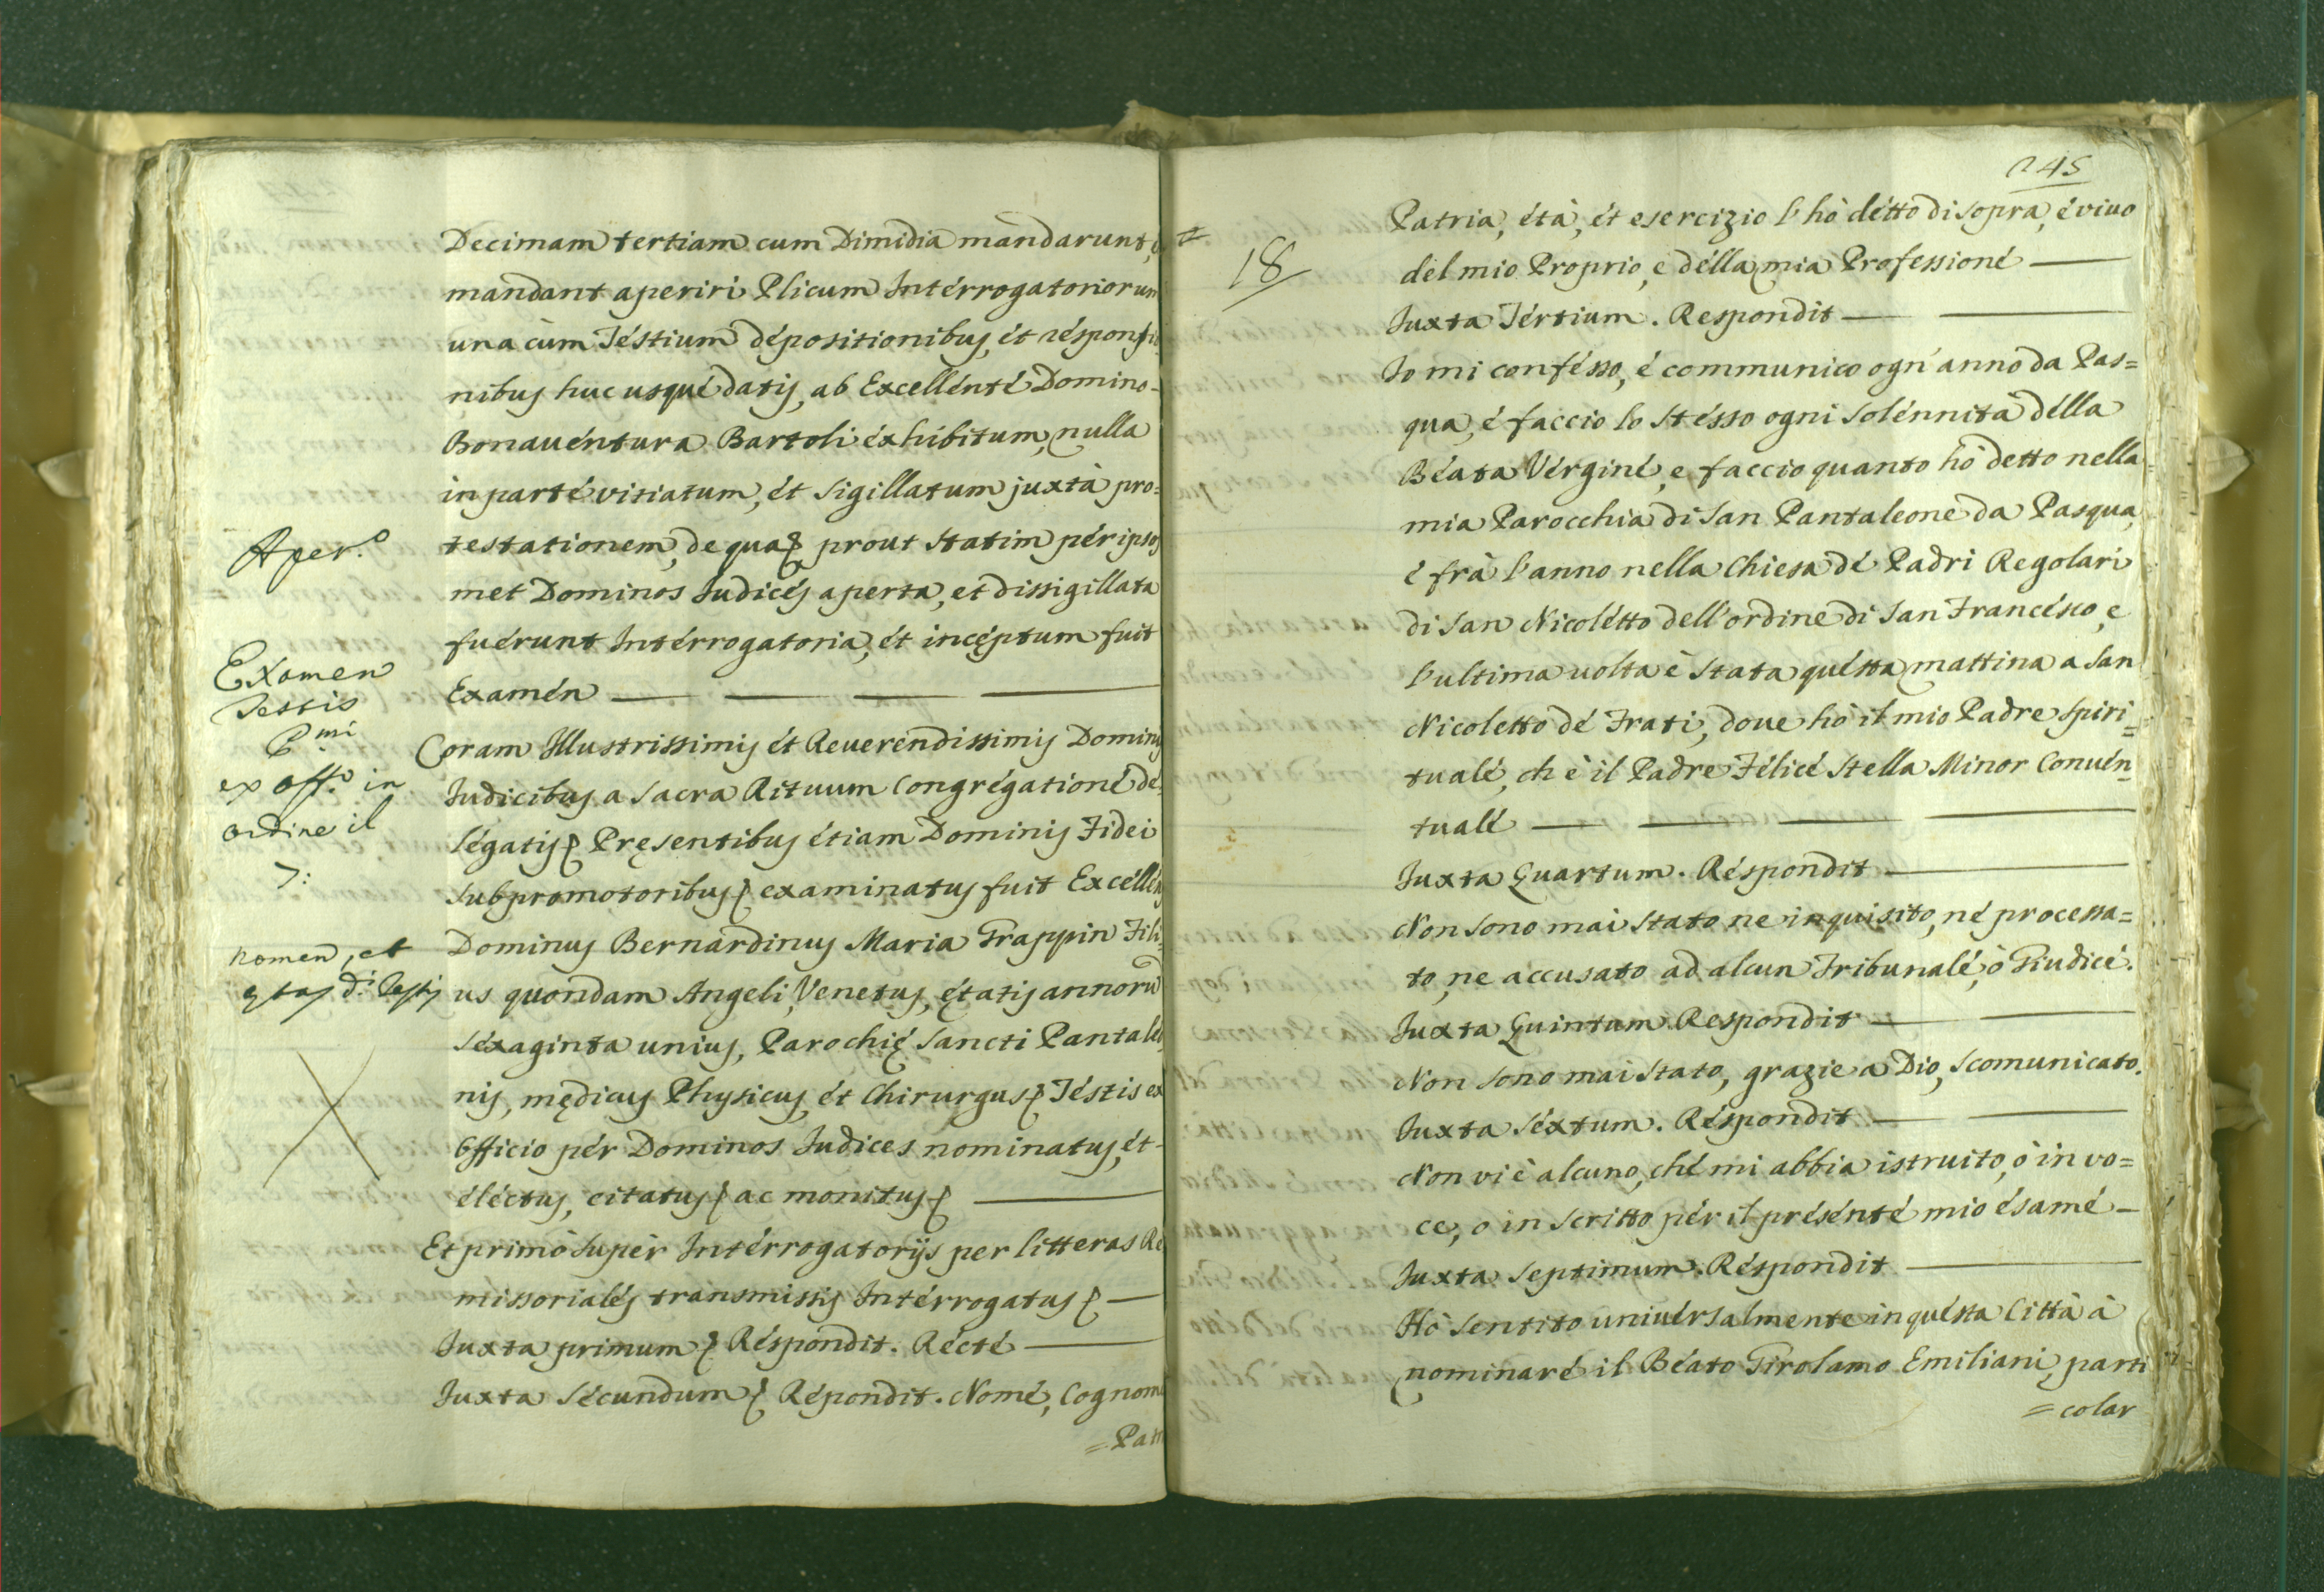 Decimam tertiam cum Dimidia mandarunt, é
mandant aperiri Plicum Intérrogatoriorum
una cùm Téstium dépositionibus, ét résponsio
nibus huc usqué datis, ab Excellénté Domino-
Bonauéntura Bartoli éxhibitum, nulla
in parté vitiatum, ét sigillatum juxtà pro=
Aper.º
testationem, de qua& prout statim pér ipsos
met Dominos Judicés aperta, et dissigillata
fuérunt Intérrogatoria, ét incęptum fuit
Examen
Testis
P.mi
ex off.º in
ordine il
7:
Examén
Coram Illustrissimis ét Reuerendissimis Dominis
Judicibus a Sacra Rituum Congrégationé dé=
légatis& Pręsentibus étiam Dominis Fidei
Subpromotoribus& examinatus fuit Excéllens
nomen, et
ętas d.i Testis
Dominus Bernardinus Maria Trappin Fili=
us quondam Angeli, Venetus, ętatis annorū
séxaginta unius, Parochię Sancti Pantaleo=
nis, mędicus Physicus, ét Chirurgus& Téstis ex
Officio pér Dominos Judices nominatus, ét-
éléctus, citatus& ac monitus&
Et primò supér Intérrogatorijs per litteras Re
missorialés transmissis Intérrogatus&
Juxta primum& Réspondit. Récté
Juxta Sécundum& Répondit. Nomé, Cognome
=Patr
245
18
Patria, étà, ét esercizio l'hò détto di sopra, é viuo
del mio Proprio, e délla mia Professioné
Juxta Tértium. Respondit
Io mi confésso, é communico ogn'anno da Pas=
qua, é faccio lo stésso ogni solénnità délla
Béata Vérginé, e faccio quanto hò detto nella
mia Parocchia di San Pantaleone da Pasqua,
é frà l'anno nella Chiesa dé Padri Regolari
di San Nicolétto dell'ordine di San Francésco, e
l'ultima uolta è stata quésta mattina a San
Nicoletto dé Frati, doue hò il mio Padre Spiri=
tualé, ch'è il Padre Félicé Stella Minor Conuén=
tualé
Juxta Quartum. Réspondit
Non sono mai stato ne inquisito, né processa=
to, ne accusato ad alcun Tribunalé, ò Giudicé.
Juxta Quintum Respondit
Non sono mai stato, grazie a Dio, scomunicato.
Juxta Séxtum. Réspondit
Non vi è alcuno, ché mi abbia istruito, ò in vo=
ce, o in scritto pér il présénté mio ésamé-
Juxta Septimum. Réspondit
Hò sentito uniuérsalmente in quésta Città à
nominaré il Béato Girolamo Emiliani, parti
=colar